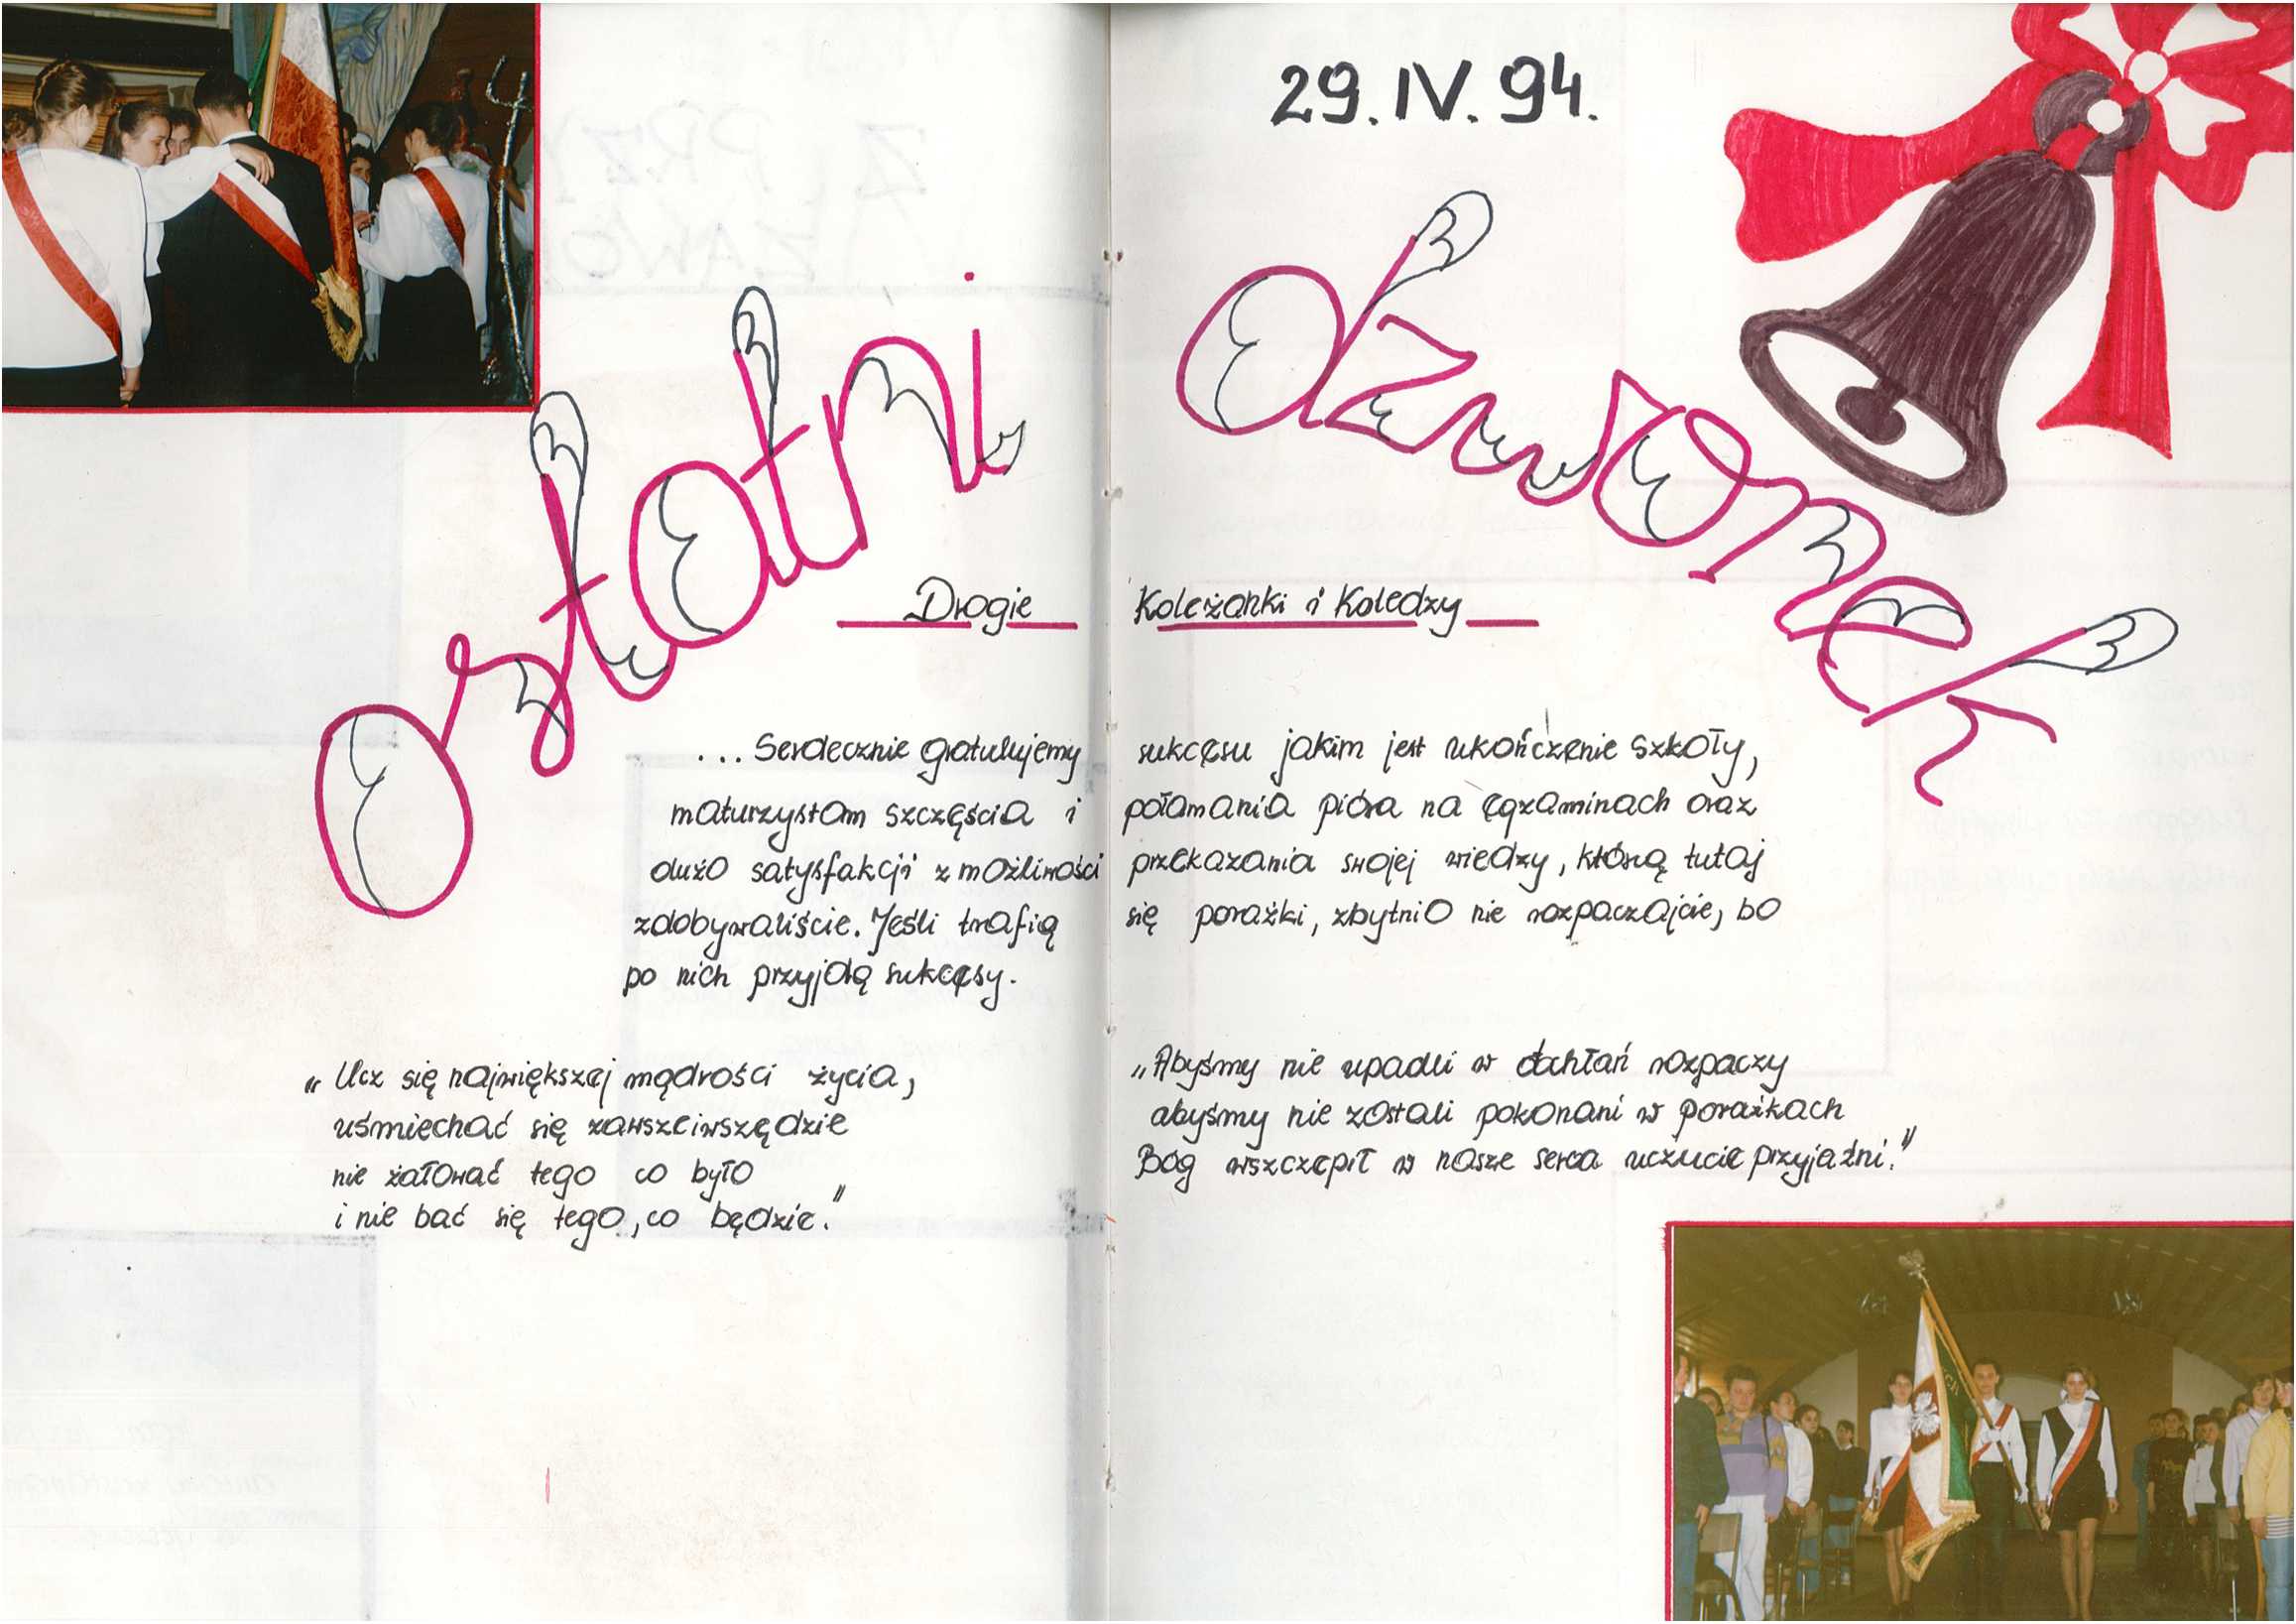 29.IV.94.
Ostatni dzwonek
Drogie Koleżanki i Koledzy
... Serdecznie gratulujemy sukcesu jakim jest ukończenie szkoły,
maturzystom szczęścia i połamania pióra na egzaminach oraz
dużo satysfakcji z możliwości przekazania swojej wiedzy, którą tutaj
zdobywaliście. Jeśli trafią się porażki, zbytnio nie rozpaczajcie, bo
po nich przyjdą sukcesy.
„Ucz się największej mądrości życia,
uśmiechać się zawsze i wszędzie
nie żałować tego co było
i nie bać się tego, co będzie."
„Abyśmy nie upadli w otchłań rozpaczy
abyśmy nie zostali pokonani w porażkach
Bóg wszczepił w nasze serca uczucie przyjaźni."